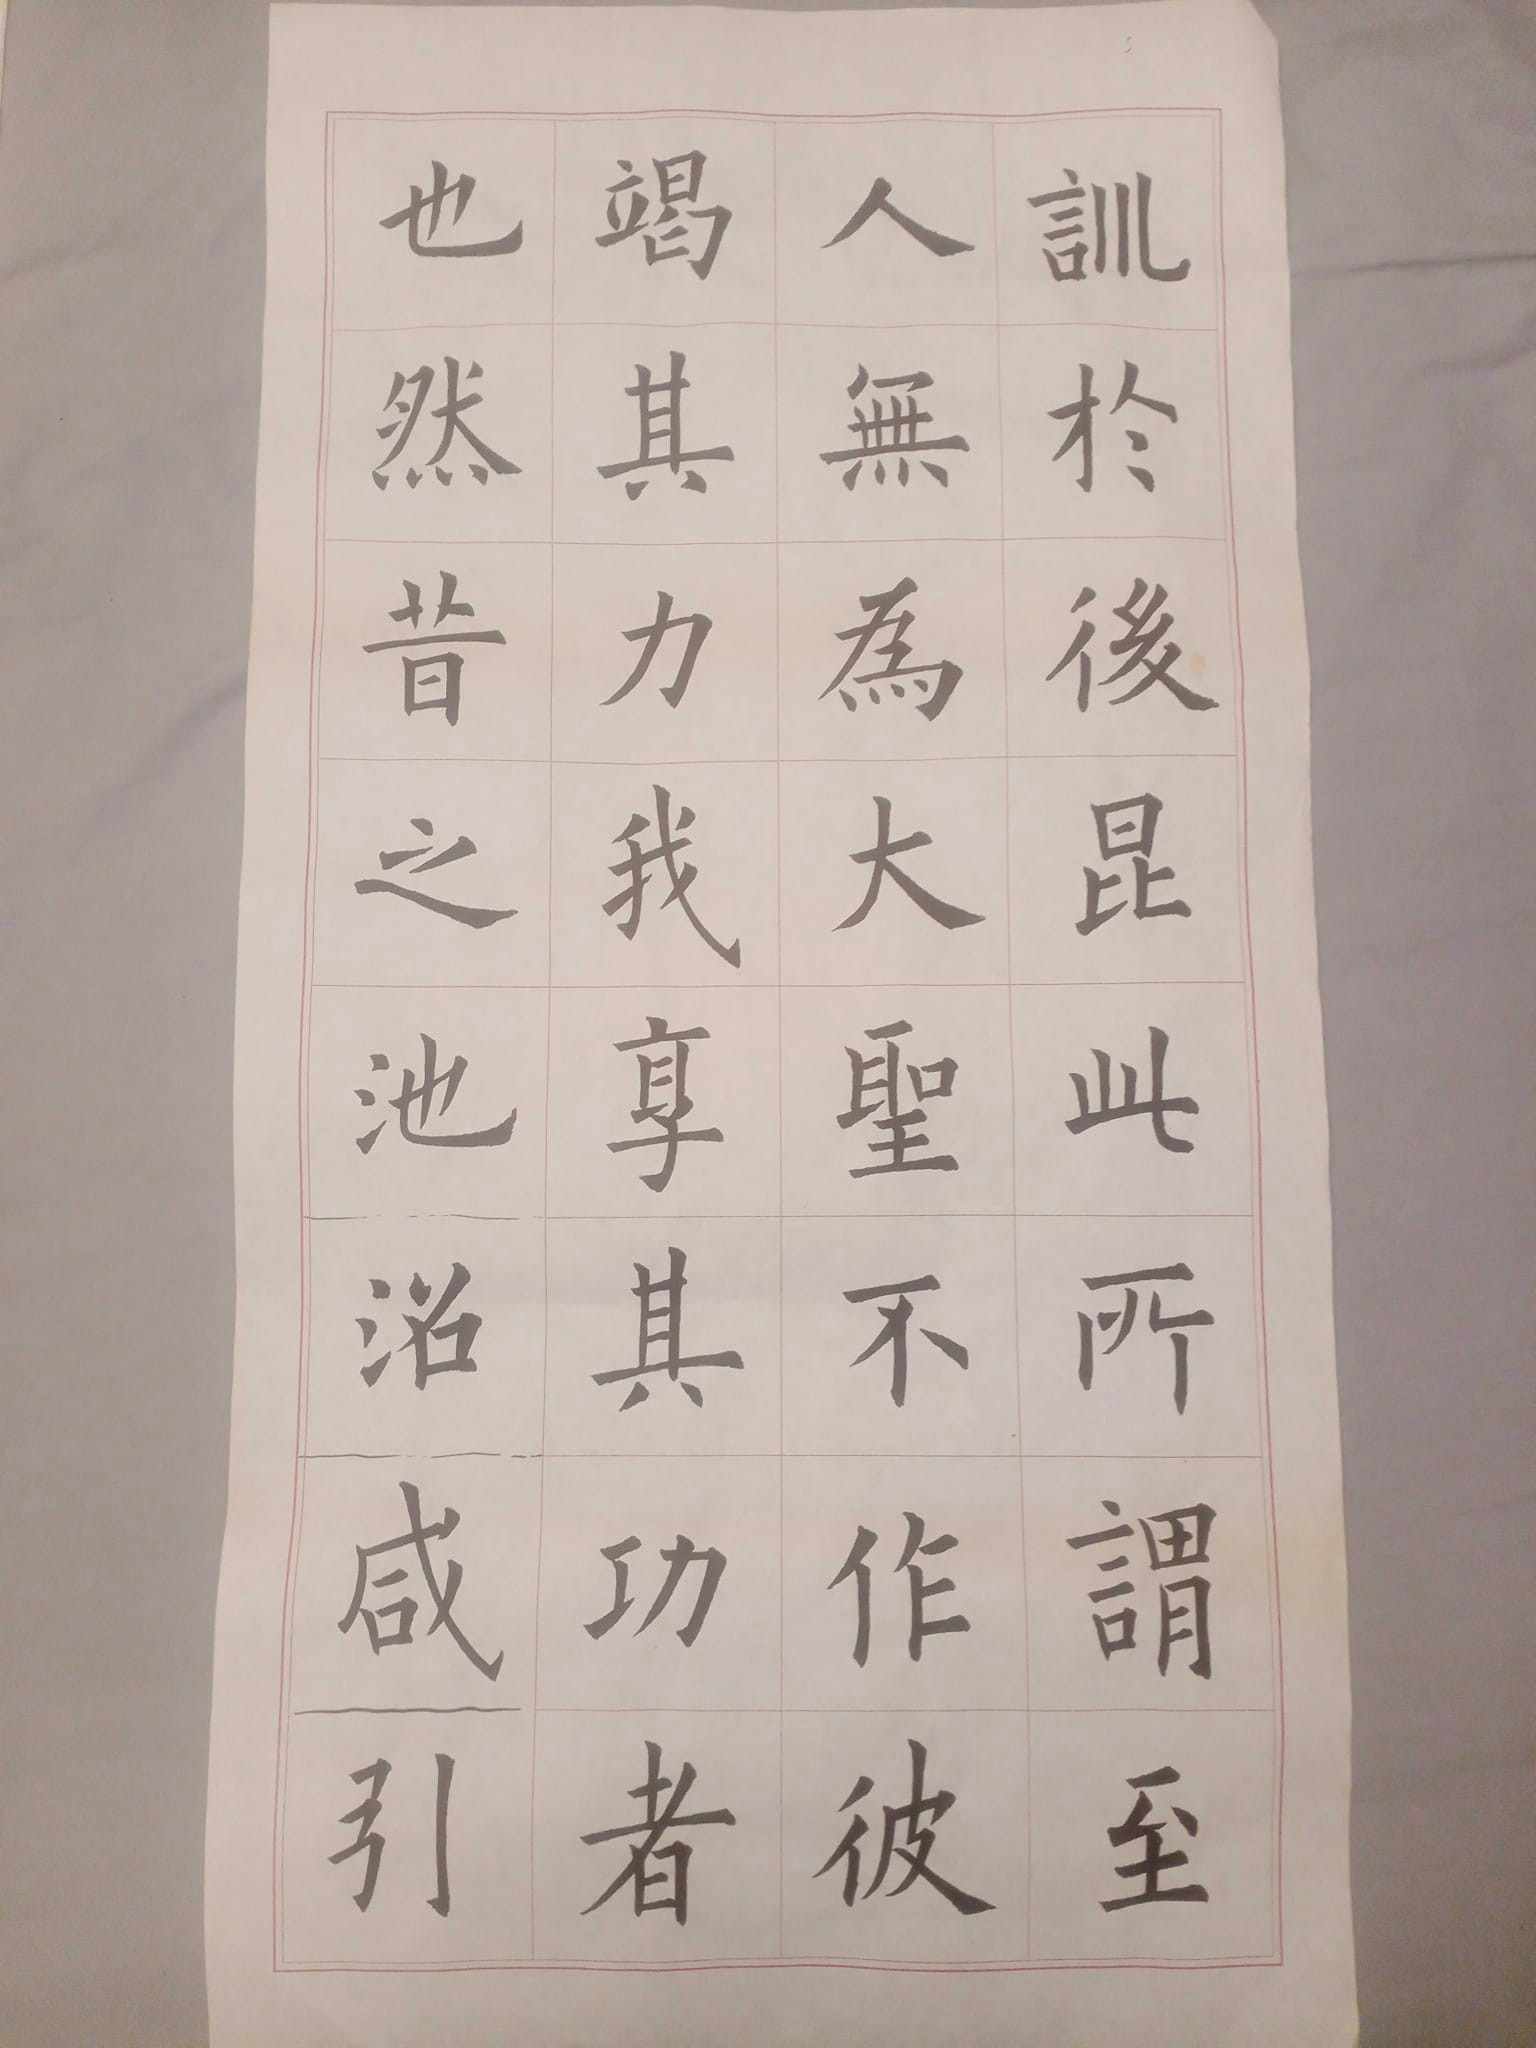 訓於後昆此所謂至
人無為大聖不作彼
竭其力我享其功者
也然昔之池沼咸引